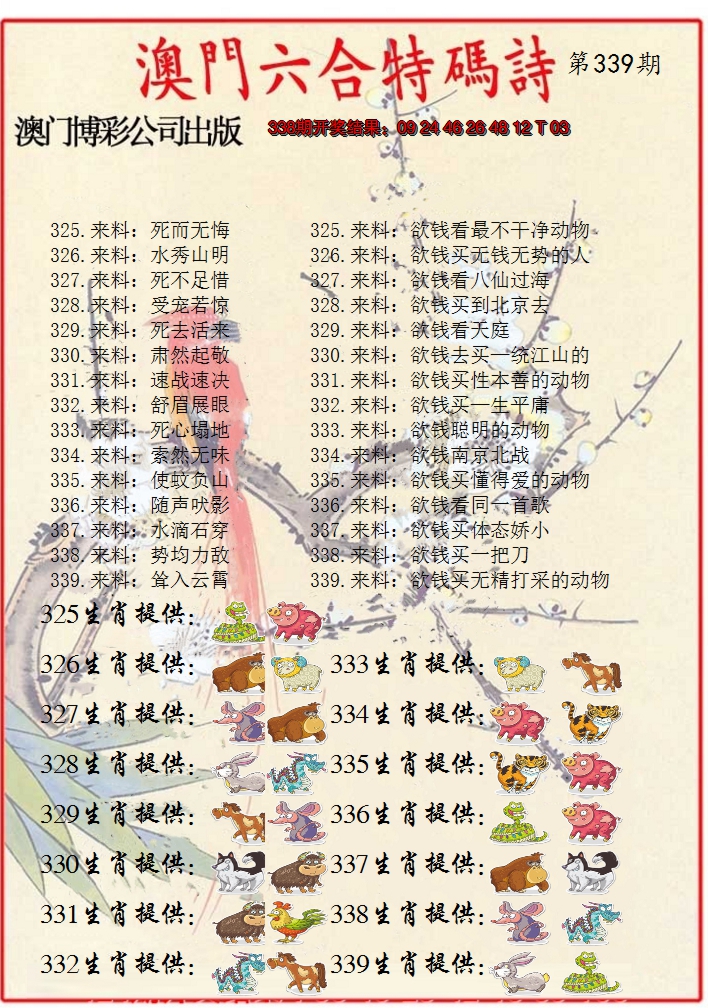 澳門六合特碼詩 第339期
澳门博彩公司出版 338期开奖结果：09 24 46 26 48 12 T 03
325.来料：死而无悔 325.来料：欲钱看最不干净动物
326.来料：水秀山明 326.来料：欲钱买无钱无势的人
327.来料：死不足惜 327.来料：欲钱看八仙过海
328.来料：受宠若惊 328.来料：欲钱买到北京去
329.来料：死去活来 329.来料：欲钱看天庭
330.来料：肃然起敬 330.来料：欲钱去买一统江山的
331.来料：速战速决 331.来料：欲钱买性本善的动物
332.来料：舒眉展眼 332.来料：欲钱买一生平庸
333.来料：死心塌地 333.来料：欲钱聪明的动物
334.来料：索然无味 334.来料：欲钱南京北战
335.来料：使蚊负山 335.来料：欲钱买懂得爱的动物
336.来料：随声吠影 336.来料：欲钱看同一首歌
337.来料：水滴石穿 337.来料：欲钱买体态娇小
338.来料：势均力敌 338.来料：欲钱买一把刀
339.来料：耸入云霄 339.来料：欲钱买无精打采的动物
325生肖提供：
326生肖提供： 333生肖提供：
327生肖提供： 334生肖提供：
328生肖提供： 335生肖提供：
329生肖提供： 336生肖提供：
330生肖提供： 337生肖提供：
331生肖提供： 338生肖提供：
332生肖提供： 339生肖提供：